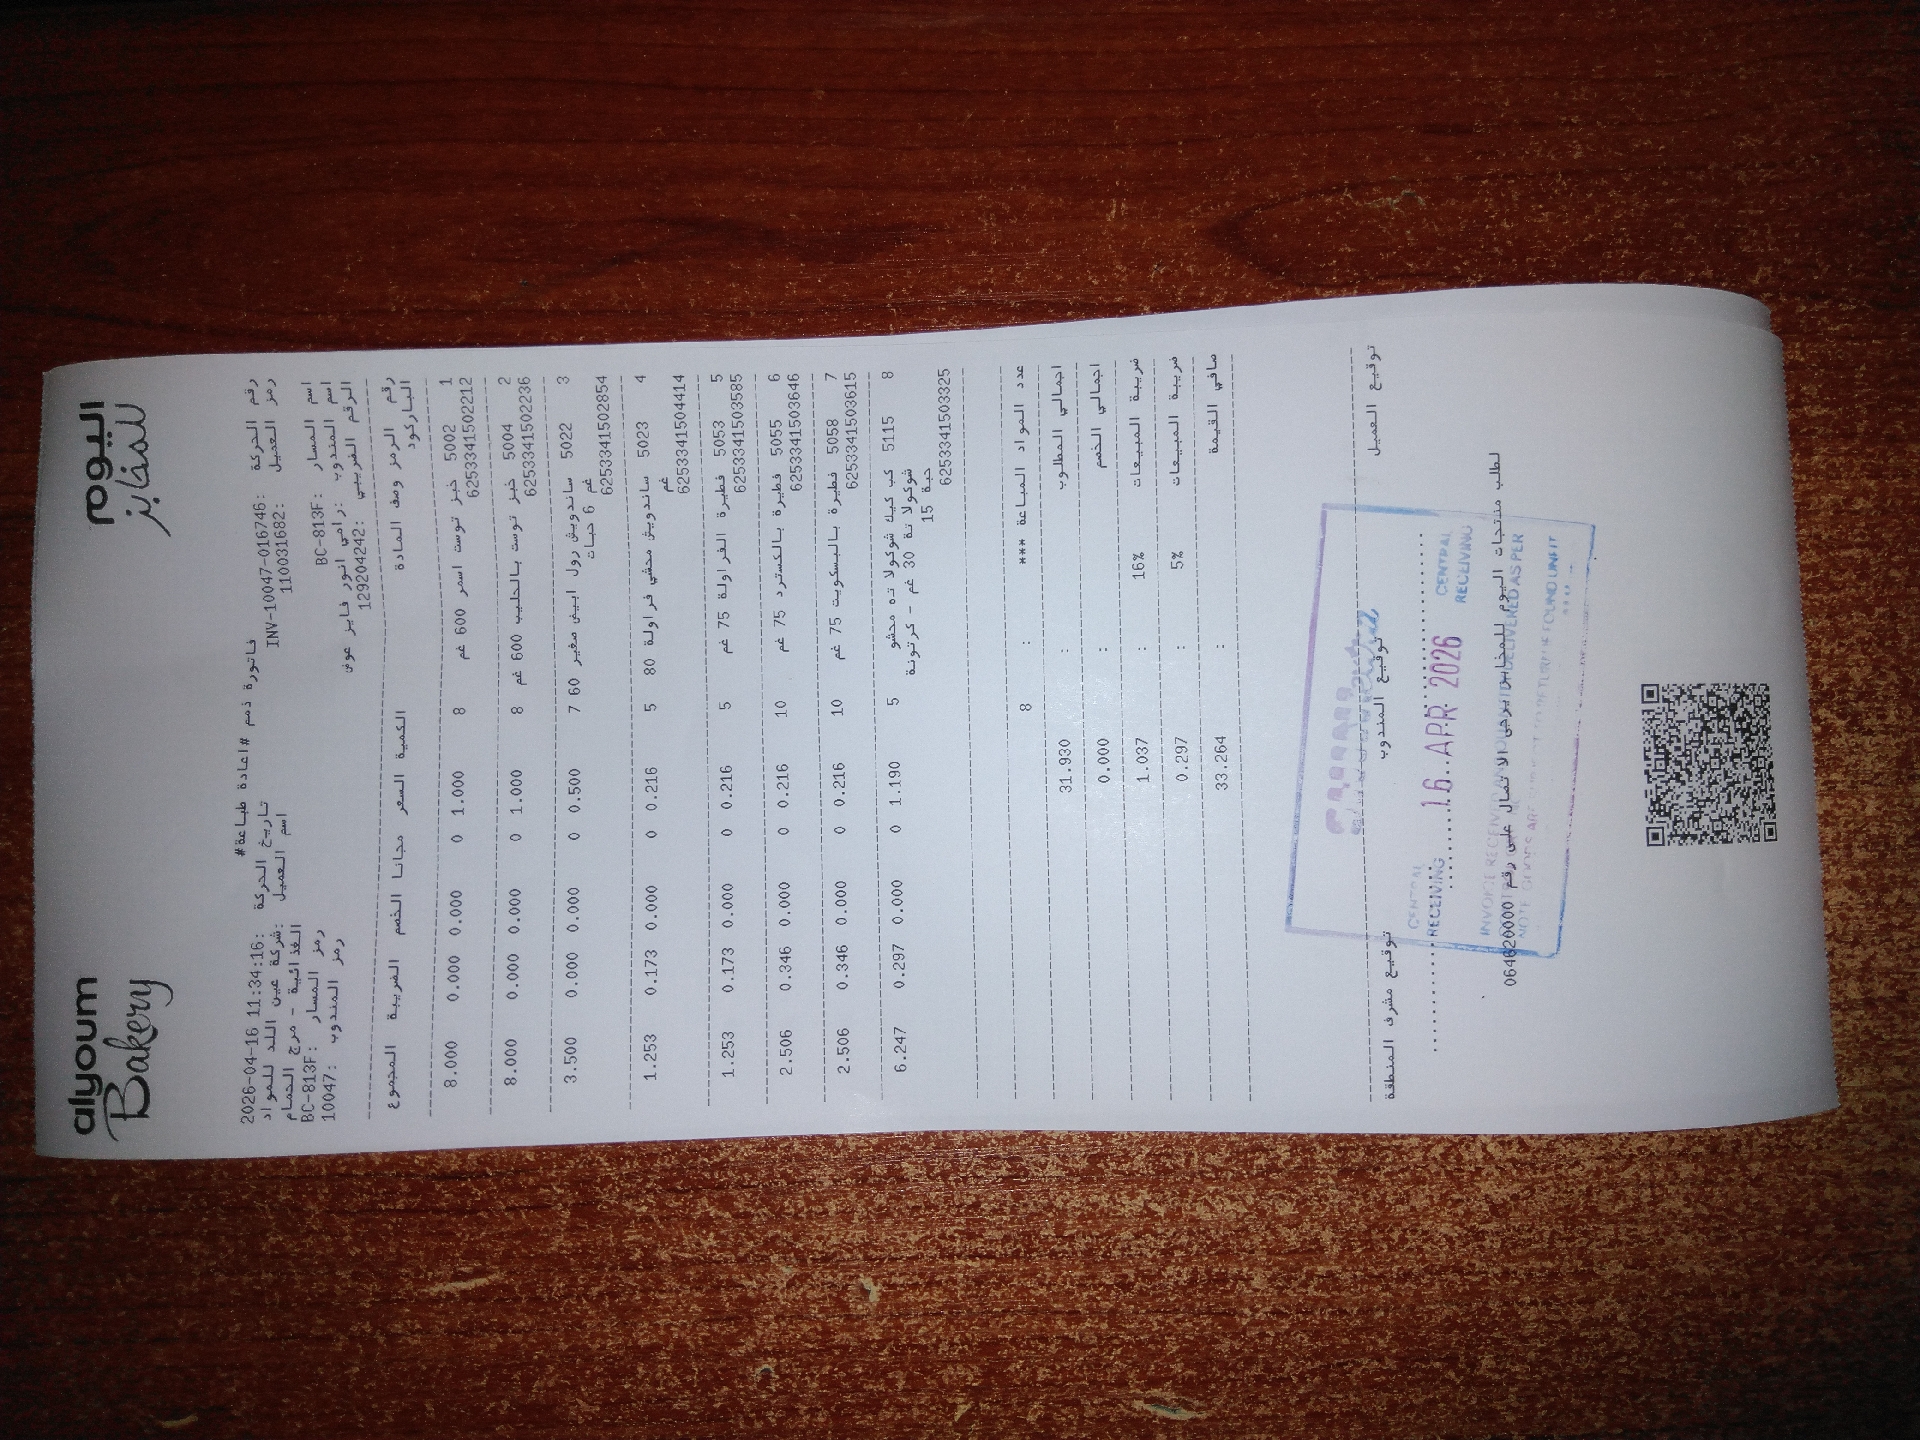 alyoum Bakery
اليوم للمخابز
فاتورة ذمم #اعادة طباعة#
رقم الحركة :INV-10047-016746 تاريخ الحركة :2026-04-16 11:34:16
رمز العميل :110031682 اسم العميل :شركة عين اللد للمواد
الغذائية - مرج الحمام
اسم المسار :BC-813F رمز المسار :BC-813F
اسم المندوب :رامي انور فايز عوض رمز المندوب :10047
الرقم الضريبي :129204242
رقم الرمز وصف المادة الكمية السعر مجانا الخصم الضريبة المجموع
الباركود
1 5002 خبز توست اسمر 600 غم 8 1.000 0 0.000 0.000 8.000
6253341502212
2 5004 خبز توست بالحليب 600 غم 8 1.000 0 0.000 0.000 8.000
6253341502236
3 5022 ساندويش رول ابيض صغير 60 7 0.500 0 0.000 0.000 3.500
غم 6 حبات
6253341502854
4 5023 ساندويش محشي فراولة 80 5 0.216 0 0.000 0.173 1.253
غم
6253341504414
5 5053 فطيرة الفراولة 75 غم 5 0.216 0 0.000 0.173 1.253
6253341503585
6 5055 فطيرة بالكسترد 75 غم 10 0.216 0 0.000 0.346 2.506
6253341503646
7 5058 فطيرة بالبسكويت 75 غم 10 0.216 0 0.000 0.346 2.506
6253341503615
8 5115 كب كيك شوكولا ته محشو 5 1.190 0 0.000 0.297 6.247
شوكولا تة 30 غم - كرتونة
15 حبة
6253341503325
عدد المواد المباعة *** : 8
اجمالي المطلوب : 31.930
اجمالي الخصم : 0.000
ضريبة المبيعات 16% : 1.037
ضريبة المبيعات 5% : 0.297
صافي القيمة : 33.264
توقيع العميل توقيع المندوب توقيع مشرف المنطقة
CENTRAL RECEIVING 16 APR 2026 CENTRAL RECEIVING
لطلب منتجات اليوم للمخابز يرجى الا تصال على رقم 064620000
INVOICE RECEIVED AND DELIVERED AS PER